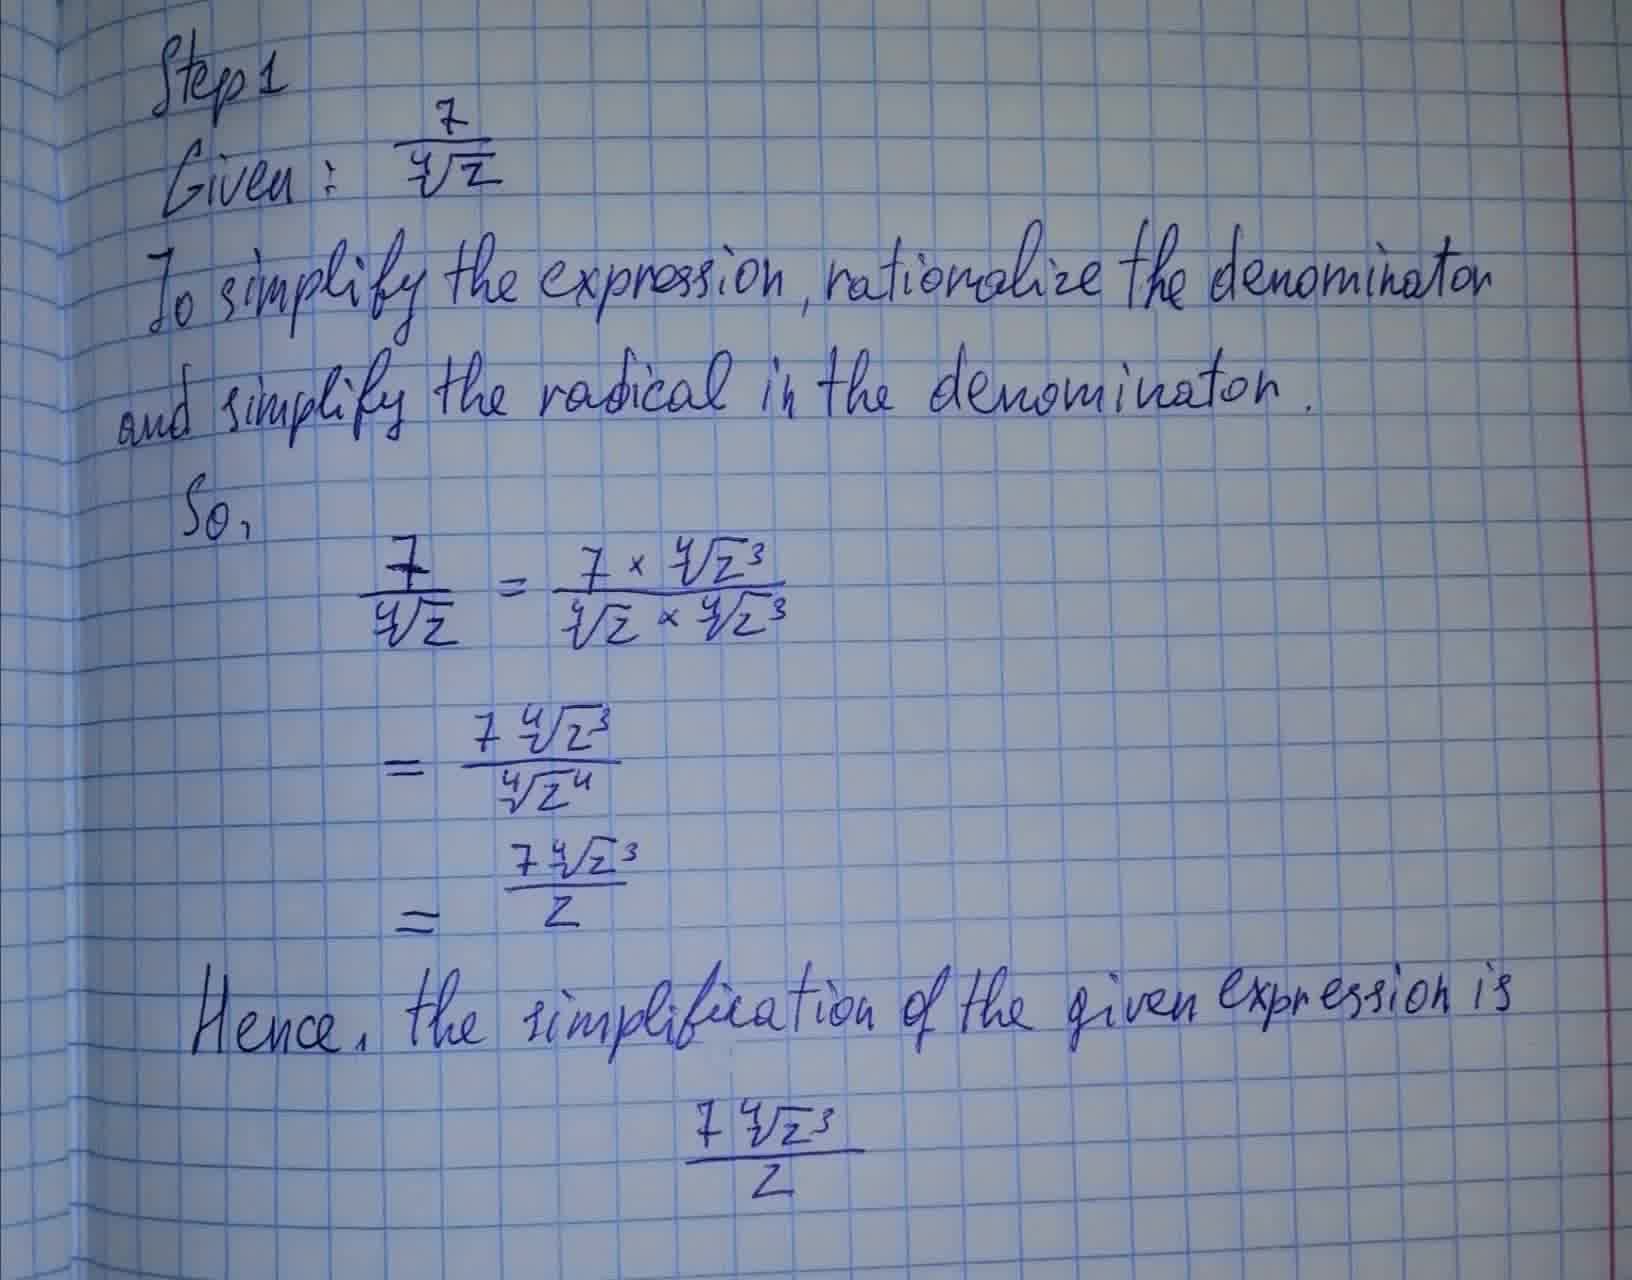 Step 1
Given: 7/∜z
To simplify the expression, rationalize the denominator
and simplify the radical in the denominator.
So,
7/∜z = (7 × ∜z³)/(∜z × ∜z³)
= 7∜z³/∜z⁴
= 7∜z³/z
Hence, the simplification of the given expression is
7∜z³/z